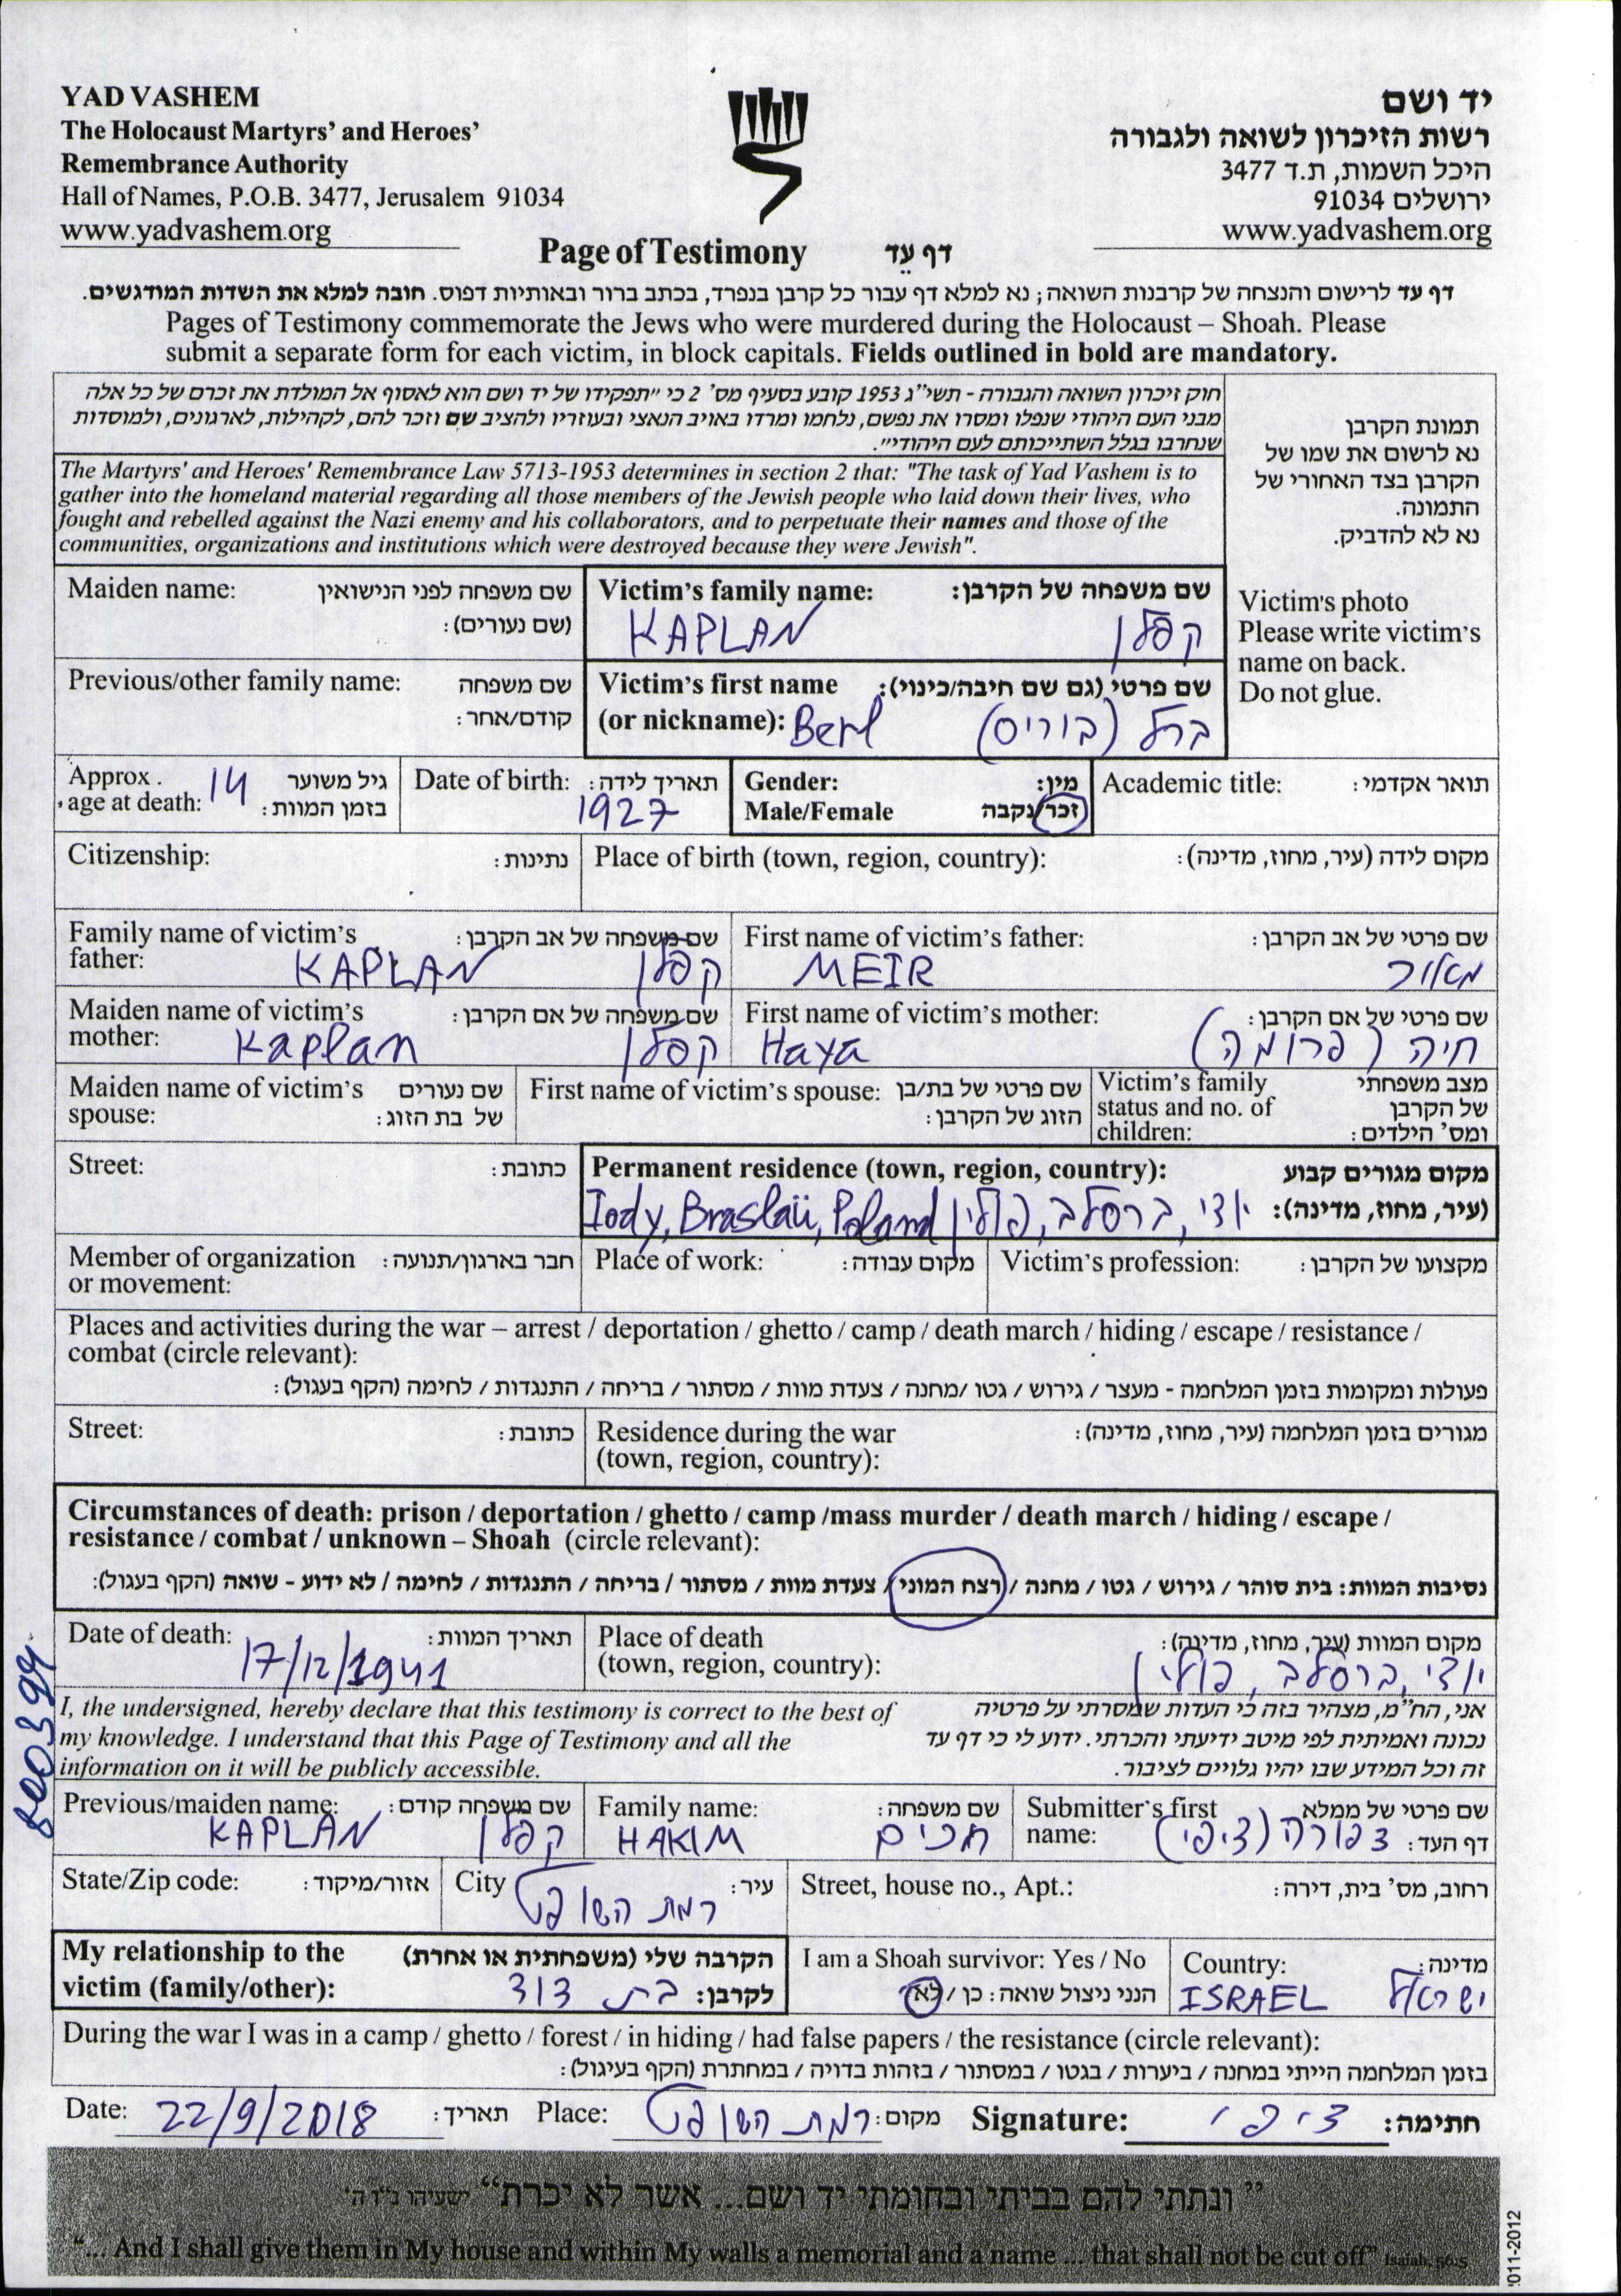 YAD VASHEM
The Holocaust Martyrs’ and Heroes’
Remembrance Authority
Hall of Names, P.O.B. 3477, Jerusalem 91034
www.yadvashem.org
יד ושם
רשות הזיכרון לשואה ולגבורה
היכל השמות, ת.ד 3477
ירושלים 91034
www.yadvashem.org
Page of Testimony דף עֵד
דף עד לרישום והנצחה של קרבנות השואה; נא למלא דף עבור כל קרבן בנפרד, בכתב ברור ובאותיות דפוס. חובה למלא את השדות המודגשים.
Pages of Testimony commemorate the Jews who were murdered during the Holocaust – Shoah. Please
submit a separate form for each victim, in block capitals. Fields outlined in bold are mandatory.
חוק זיכרון השואה והגבורה - תשי״ג 1953 קובע בסעיף מס' 2 כי ״תפקידו של יד ושם הוא לאסוף אל המולדת את זכרם של כל אלה
מבני העם היהודי שנפלו ומסרו את נפשם, נלחמו ומרדו באויב הנאצי ובעוזריו ולהציב שם וזכר להם, לקהילות, לארגונים, ולמוסדות
שנחרבו בגלל השתייכותם לעם היהודי״.
The Martyrs' and Heroes' Remembrance Law 5713-1953 determines in section 2 that: "The task of Yad Vashem is to
gather into the homeland material regarding all those members of the Jewish people who laid down their lives, who
fought and rebelled against the Nazi enemy and his collaborators, and to perpetuate their names and those of the
communities, organizations and institutions which were destroyed because they were Jewish".
תמונת הקרבן
נא לרשום את שמו של
הקרבן בצד האחורי של
התמונה.
נא לא להדביק.
Victim's photo
Please write victim's
name on back.
Do not glue.
Maiden name: שם משפחה לפני הנישואין
(שם נעורים):
Victim's family name: שם משפחה של הקרבן:
KAPLAN קפלן
Previous/other family name: שם משפחה
קודם/אחר:
Victim's first name שם פרטי (גם שם חיבה/כינוי):
(or nickname): Berl ברל (בוריס)
Approx. גיל משוער
age at death: 14 בזמן המוות:
Date of birth: תאריך לידה:
1927
Gender: מין:
Male/Female זכר/נקבה
Academic title: תואר אקדמי:
Citizenship: נתינות:
Place of birth (town, region, country): מקום לידה (עיר, מחוז, מדינה):
Family name of victim's שם משפחה של אב הקרבן:
father: KAPLAN קפלן
First name of victim's father: שם פרטי של אב הקרבן:
MEIR מאיר
Maiden name of victim's שם משפחה של אם הקרבן:
mother: Kaplan קפלן
First name of victim's mother: שם פרטי של אם הקרבן:
Haya חיה (פרומה)
Maiden name of victim's שם נעורים
spouse: של בת הזוג:
First name of victim's spouse: שם פרטי של בת/בן
הזוג של הקרבן:
Victim's family מצב משפחתי
status and no. of של הקרבן
children: ומס' הילדים:
Street: כתובת:
Permanent residence (town, region, country): מקום מגורים קבוע
(עיר, מחוז, מדינה): יודי, ברסלב, פולין Iody, Braslaü, Poland
Member of organization חבר בארגון/תנועה:
or movement:
Place of work: מקום עבודה:
Victim's profession: מקצועו של הקרבן:
Places and activities during the war – arrest / deportation / ghetto / camp / death march / hiding / escape / resistance /
combat (circle relevant):
פעולות ומקומות בזמן המלחמה - מעצר / גירוש / גטו /מחנה / צעדת מוות / מסתור / בריחה / התנגדות / לחימה (הקף בעגול):
Street: כתובת:
Residence during the war מגורים בזמן המלחמה (עיר, מחוז, מדינה):
(town, region, country):
Circumstances of death: prison / deportation / ghetto / camp /mass murder / death march / hiding / escape /
resistance / combat / unknown – Shoah (circle relevant):
נסיבות המוות: בית סוהר / גירוש / גטו / מחנה / רצח המוני / צעדת מוות / מסתור / בריחה / התנגדות / לחימה / לא ידוע - שואה (הקף בעגול):
Date of death: תאריך המוות:
17/12/1941
Place of death מקום המוות (עיר, מחוז, מדינה):
(town, region, country): יודי, ברסלב, פולין
800399
I, the undersigned, hereby declare that this testimony is correct to the best of
my knowledge. I understand that this Page of Testimony and all the
information on it will be publicly accessible.
אני, הח״מ, מצהיר בזה כי העדות שמסרתי על פרטיה
נכונה ואמיתית לפי מיטב ידיעתי והכרתי. ידוע לי כי דף עד
זה וכל המידע שבו יהיו גלויים לציבור.
Previous/maiden name: שם משפחה קודם:
KAPLAN קפלן
Family name: שם משפחה:
HAKIM חכים
Submitter's first שם פרטי של ממלא
name: דף העד: צפורה (ציפי)
State/Zip code: אזור/מיקוד:
City עיר:
רמת השופט
Street, house no., Apt.: רחוב, מס' בית, דירה:
My relationship to the הקרבה שלי (משפחתית או אחרת)
victim (family/other): לקרבן: בת דוד
I am a Shoah survivor: Yes / No
הנני ניצול שואה: כן / לא
Country: מדינה:
ISRAEL ישראל
During the war I was in a camp / ghetto / forest / in hiding / had false papers / the resistance (circle relevant):
בזמן המלחמה הייתי במחנה / ביערות / בגטו / במסתור / בזהות בדויה / במחתרת (הקף בעיגול):
Date: 22/9/2018 תאריך: Place: רמת השופט מקום: Signature: ציפי חתימה:
” ונתתי להם בביתי ובחומתי יד ושם... אשר לא יכרת“ ישעיהו נ״ו ה'
“... And I shall give them in My house and within My walls a memorial and a name ... that shall not be cut off” Isaiah, 56:5
011-2012